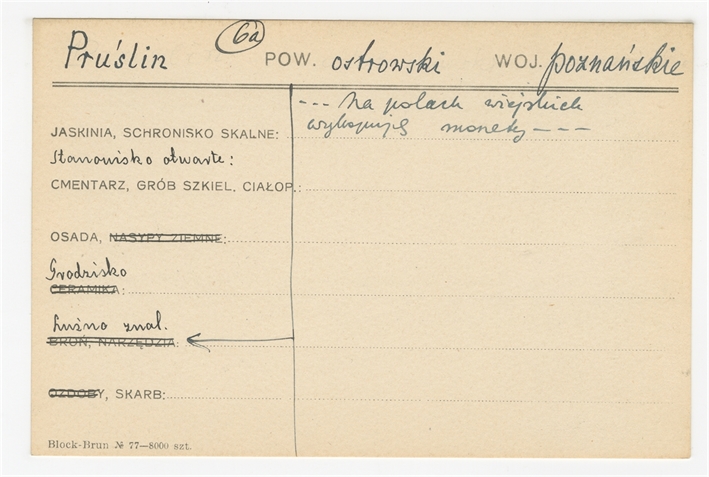 Pruślin 6a POW. ostrowski WOJ. poznańskie
--- na polach wiejskich
wykopują monety ---
JASKINIA, SCHRONISKO SKALNE:
Stanowisko otwarte:
CMENTARZ, GRÓB SZKIEL. CIAŁOP.:
OSADA, NASYPY ZIEMNE:
Grodzisko
CERAMIKA:
Luźno znal.
BROŃ, NARZĘDZIA:
OZDOBY, SKARB:
Block-Brun № 77—8000 szt.